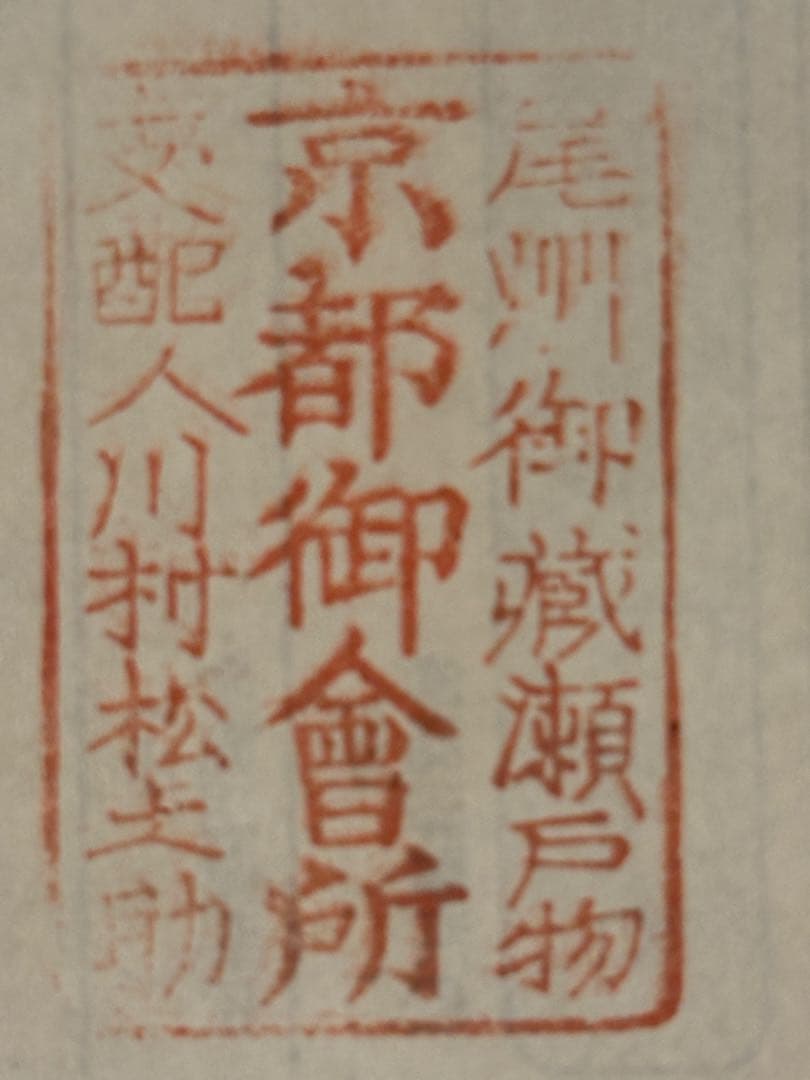 尾州御藏瀬戸物
京都御會所
支配人川村松之助